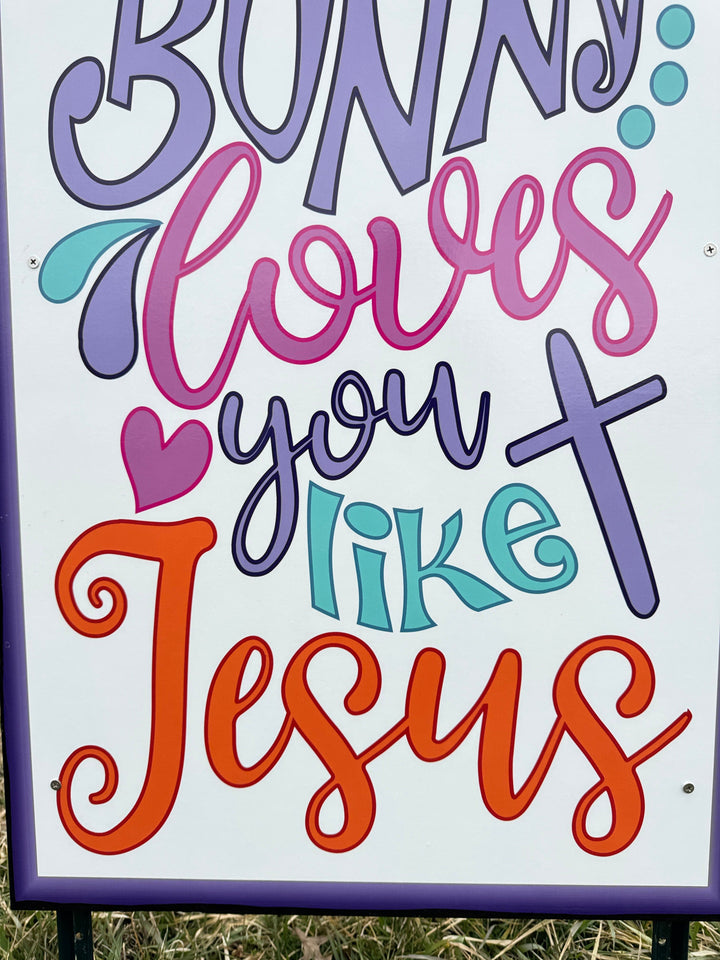 BUNNY
loves
you
like
Jesus